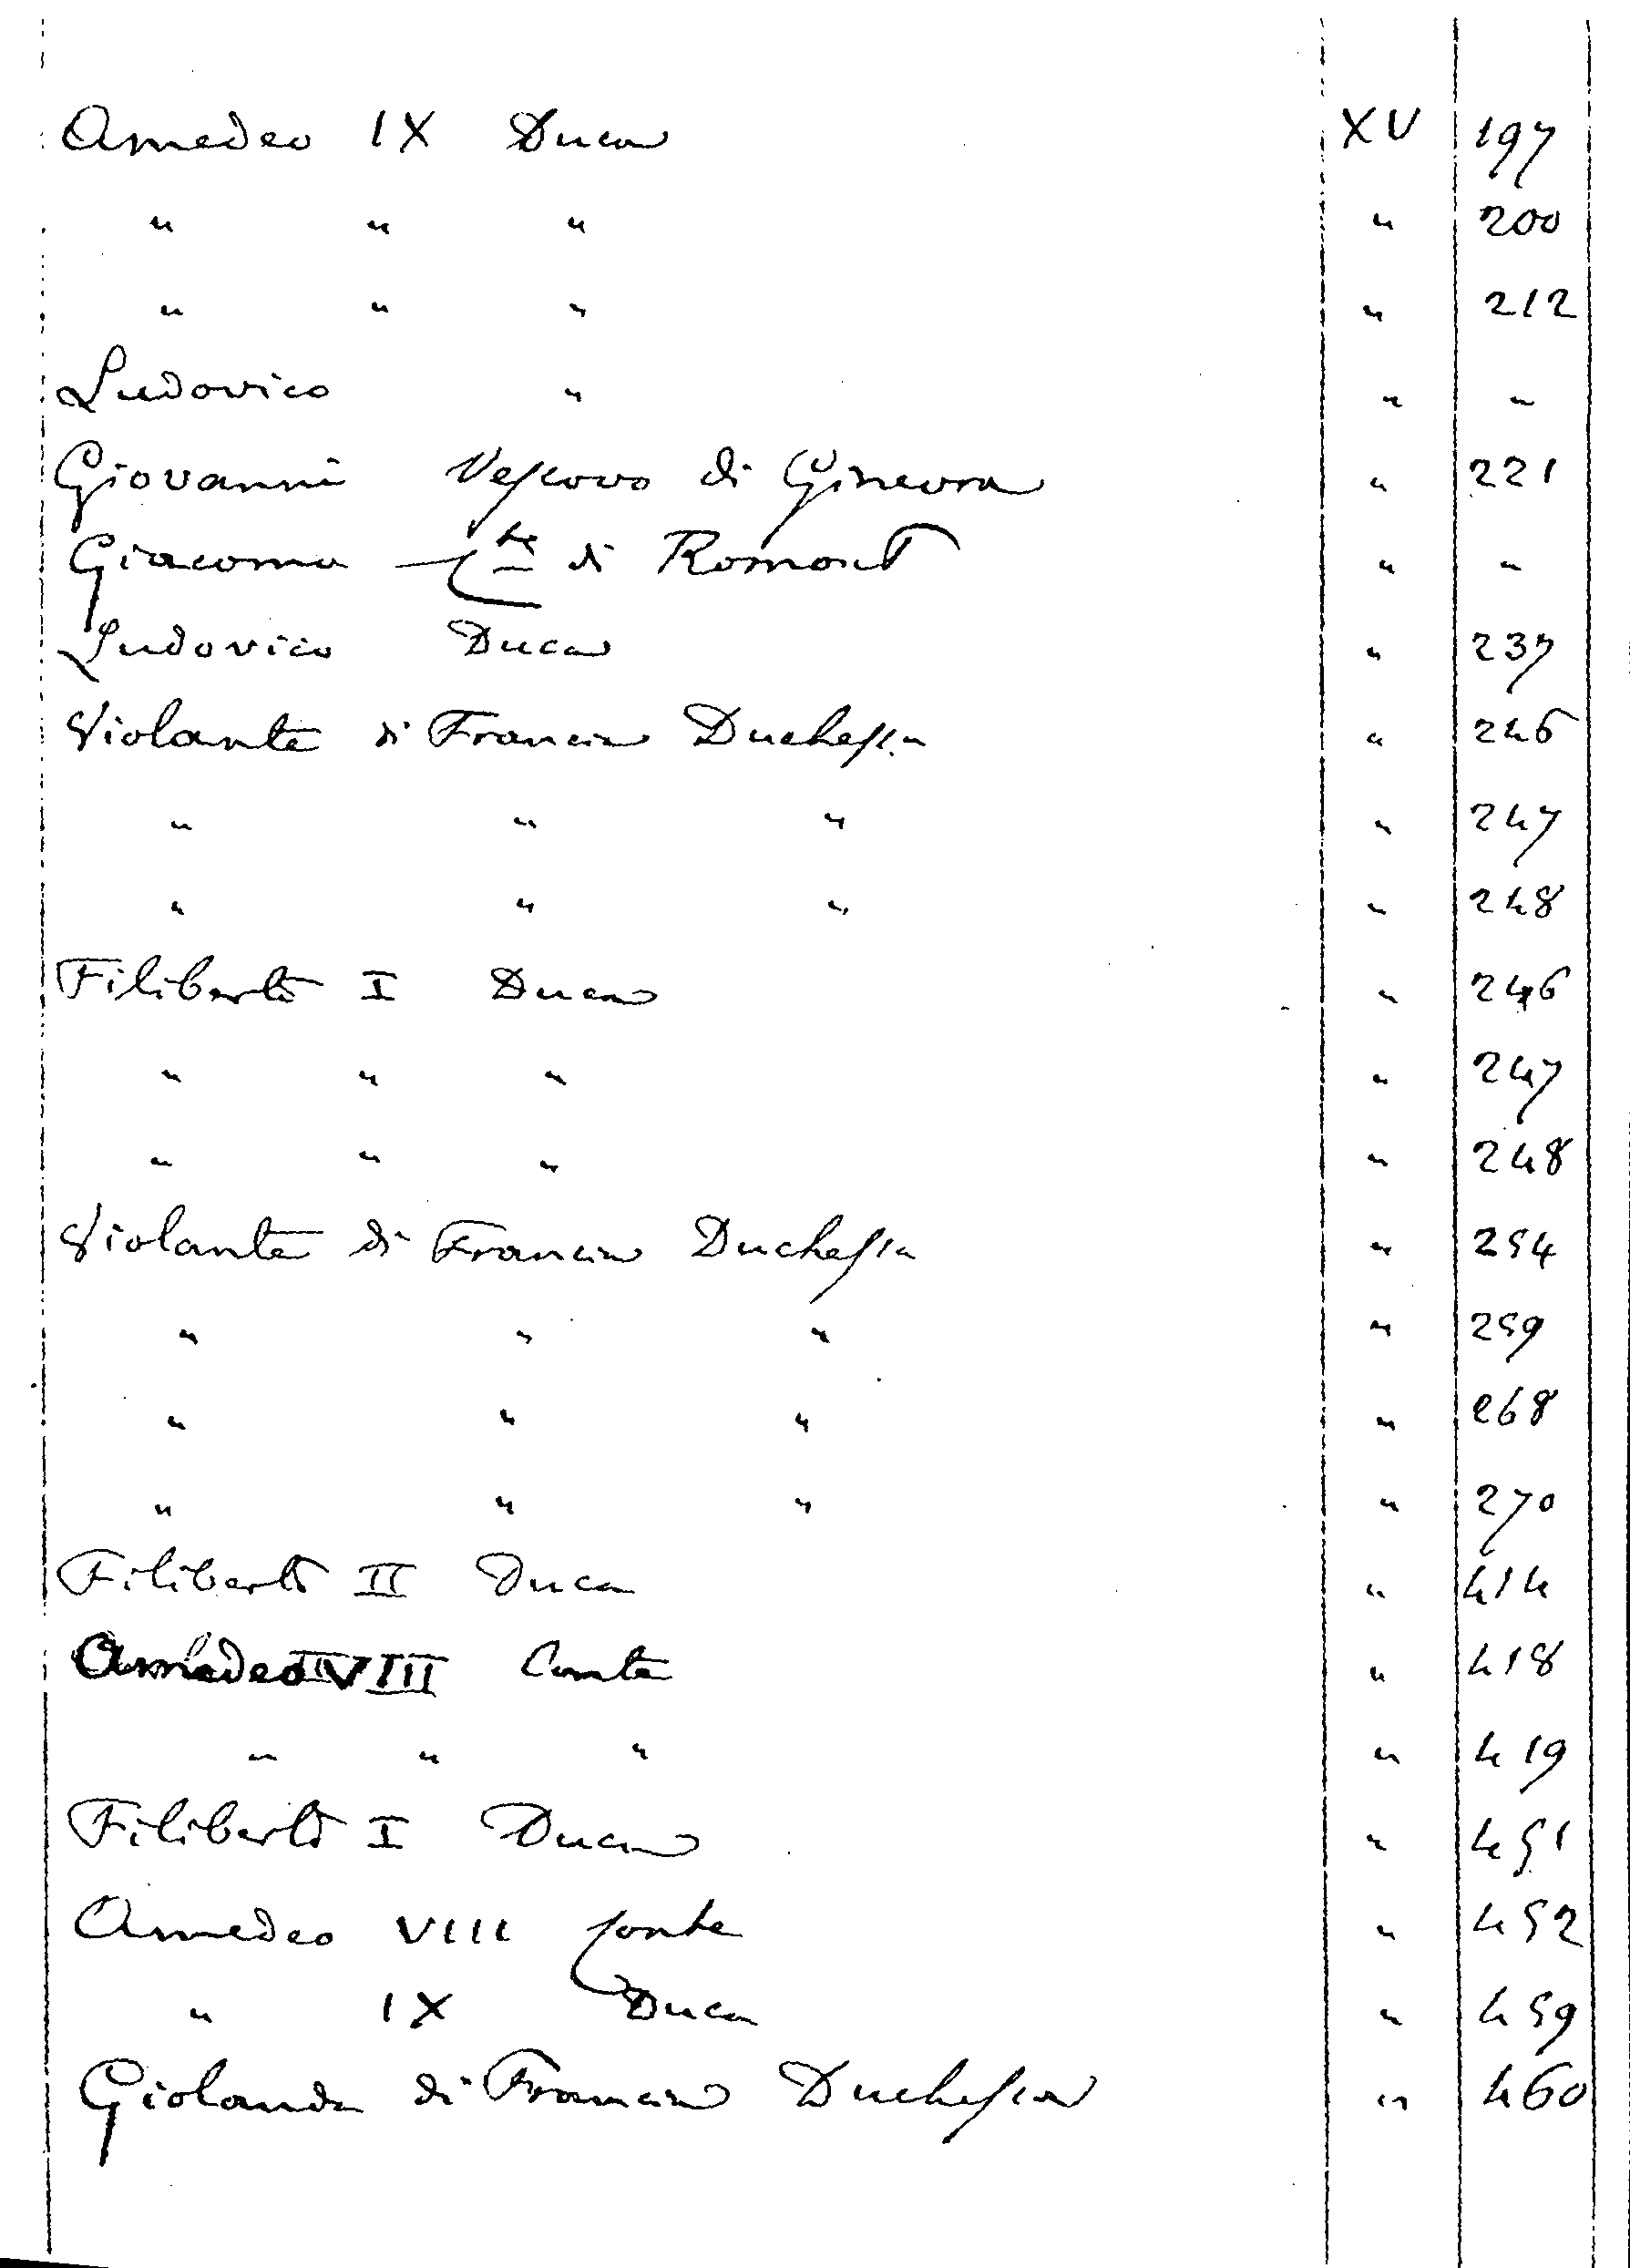 Amedeo IX Duca XV 197
" " " " 200
" " " " 212
Ludovico " " "
Giovanni Vescovo di Ginevra " 221
Giacomo Cte di Romont " "
Ludovico Duca " 237
Violante di Francia Duchessa " 246
" " " " 247
" " " " 248
Filiberto I Duca " 246
" " " " 247
" " " " 248
Violante di Francia Duchessa " 254
" " " " 259
" " " " 268
" " " " 270
Filiberto II Duca " 414
Amedeo VIII Conte " 418
" " " " 419
Filiberto I Duca " 451
Amedeo VIII Conte " 452
" IX Duca " 459
Giolanda di Francia Duchessa " 460